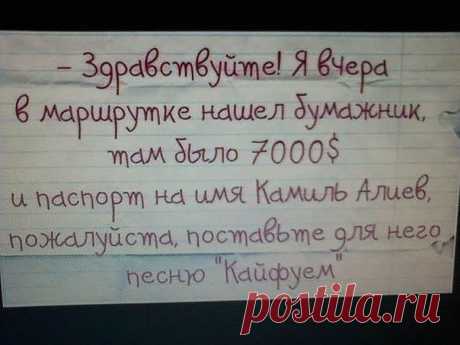 – Здравствуйте! Я вчера
в маршрутке нашел бумажник,
там было 7000$
и паспорт на имя Камиль Алиев,
пожалуйста, поставьте для него
песню "Кайфуем"
postila.ru